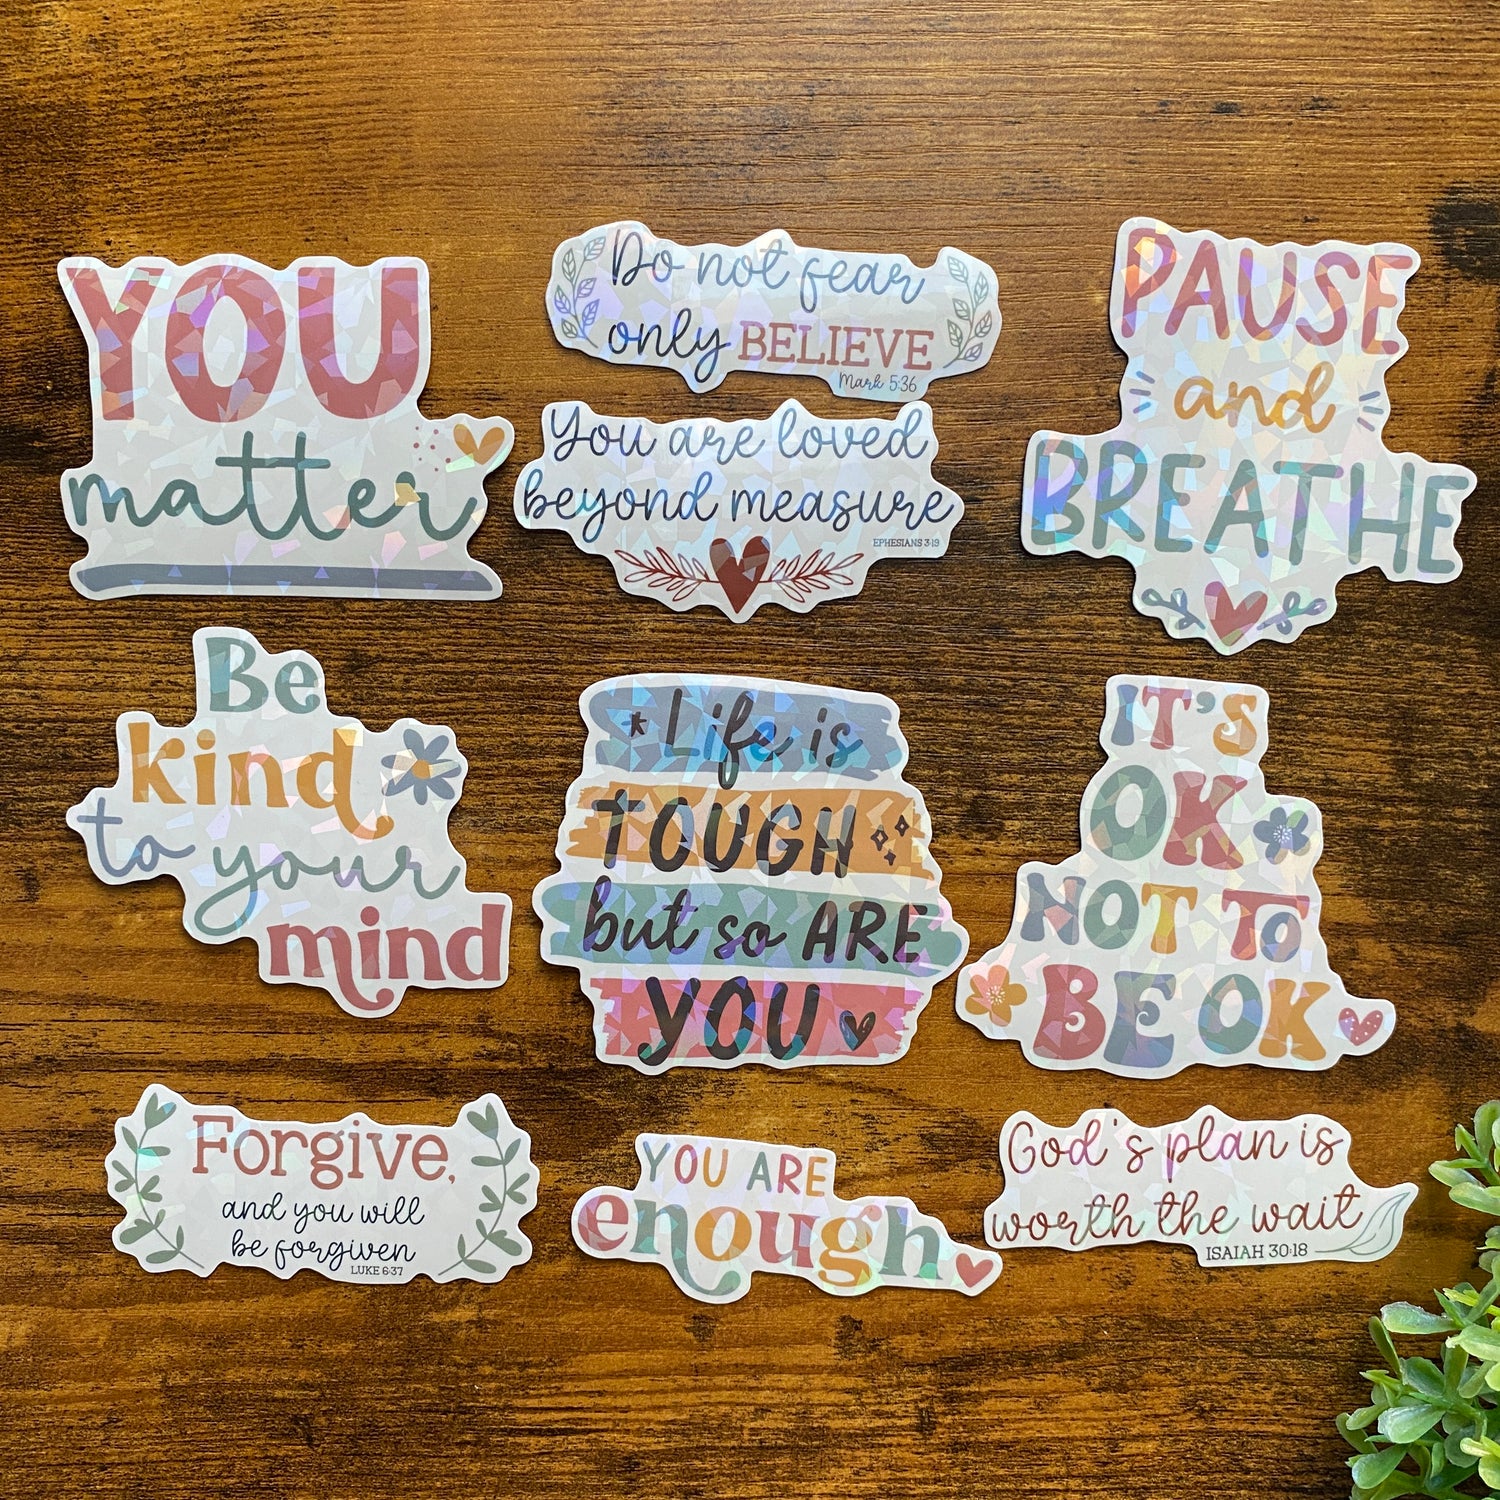 YOU
matter
Do not fear
only BELIEVE
Mark 5:36
You are loved
beyond measure
EPHESIANS 3:19
PAUSE
and
BREATHE
Be
kind
to your
mind
Life is
TOUGH
but so ARE
YOU
IT'S
OK
NOT TO
BE OK
Forgive,
and you will
be forgiven
LUKE 6:37
YOU ARE
enough
God's plan is
worth the wait
ISAIAH 30:18